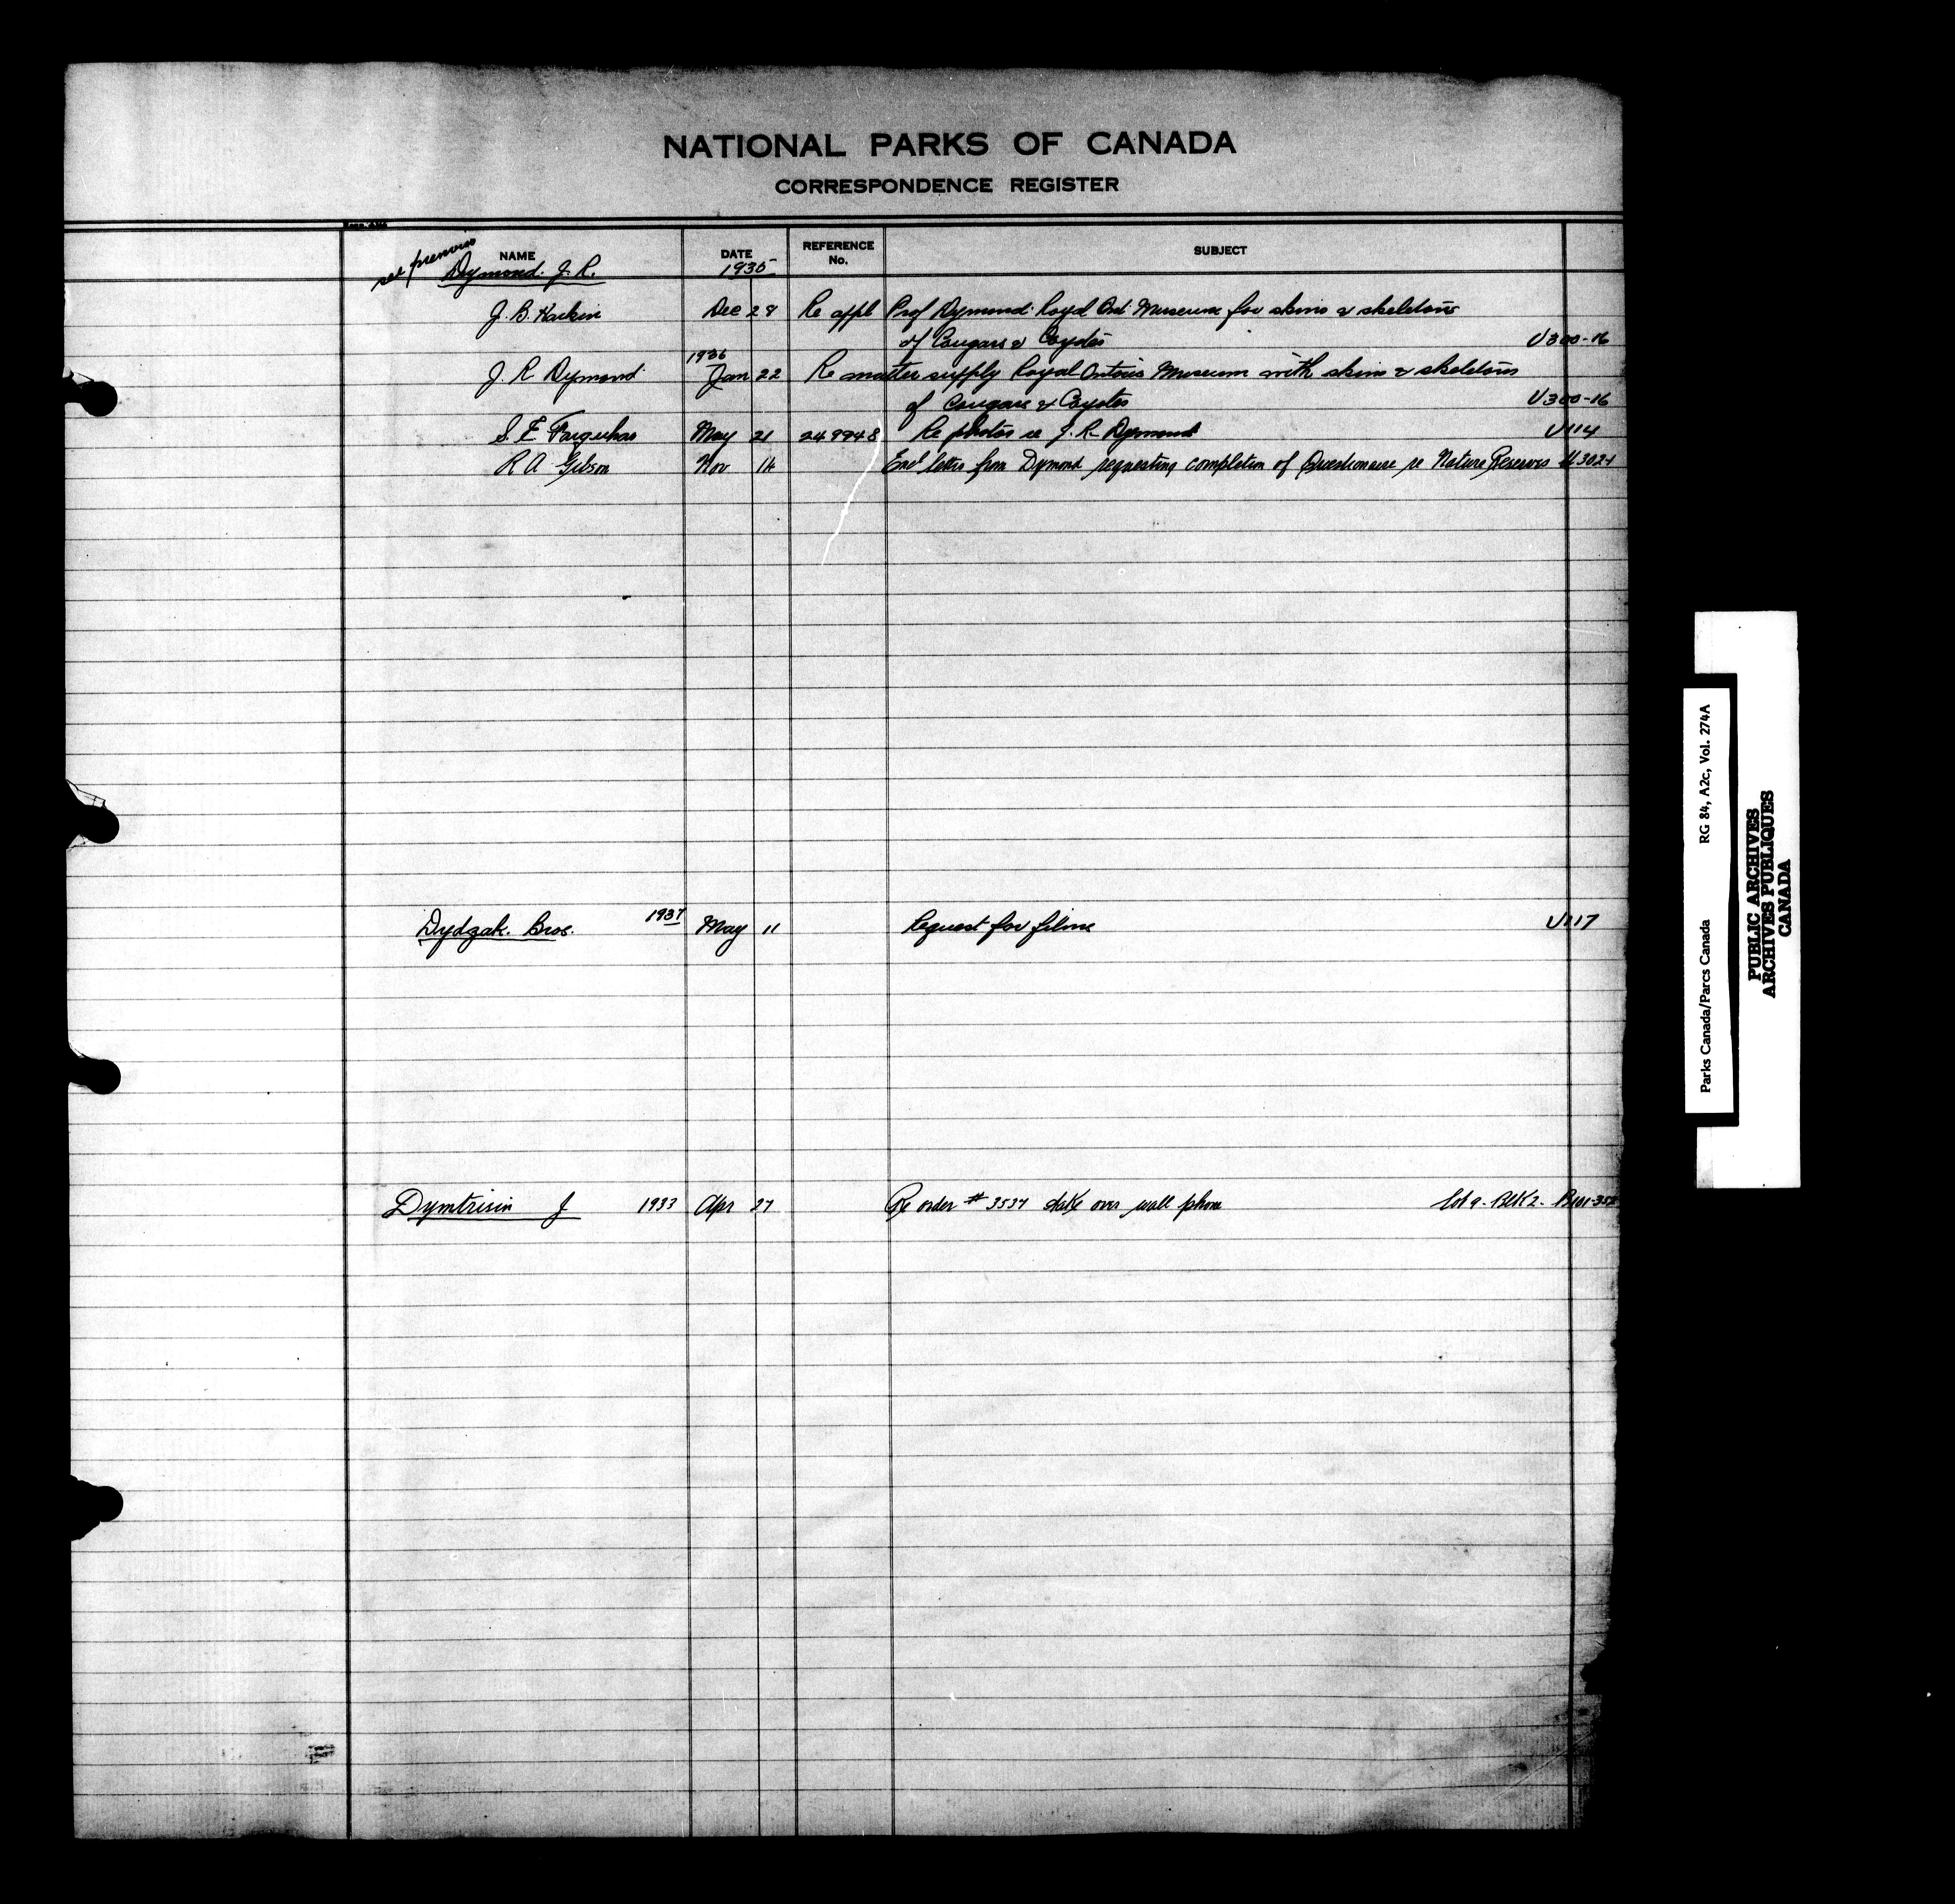 NATIONAL PARKS OF CANADA
CORRESPONDENCE REGISTER
NAME DATE REFERENCE No. SUBJECT
see previous
Dymond. J. R. 1935
J. B. Harkin Dec 28 Re appl Prof Dymond. Royal Ont. Museum for skins & skeletons
of Cougars & Coyotes U300-16
1936
J. R Dymond. Jan 22 Re matter supply Royal Ontario Museum with skins & skeletons
of Cougars & Coyotes U300-16
S. E Farquhar May 21 249948 Re photos re J. R. Dymond U114
R A Gibson Nov 14 Encl letter from Dymond requesting completion of Questionaire re Nature Reserves U302-1
Dydzak. Bros. 1937 May 11 Request for films U117
Dymtrisin J 1933 Apr 27 Re order # 3537 take over wall phone Lot 9 - Blk 2 -
Parks Canada/Parcs Canada RG 84, A2c, Vol. 274A
PUBLIC ARCHIVES
ARCHIVES PUBLIQUES
CANADA